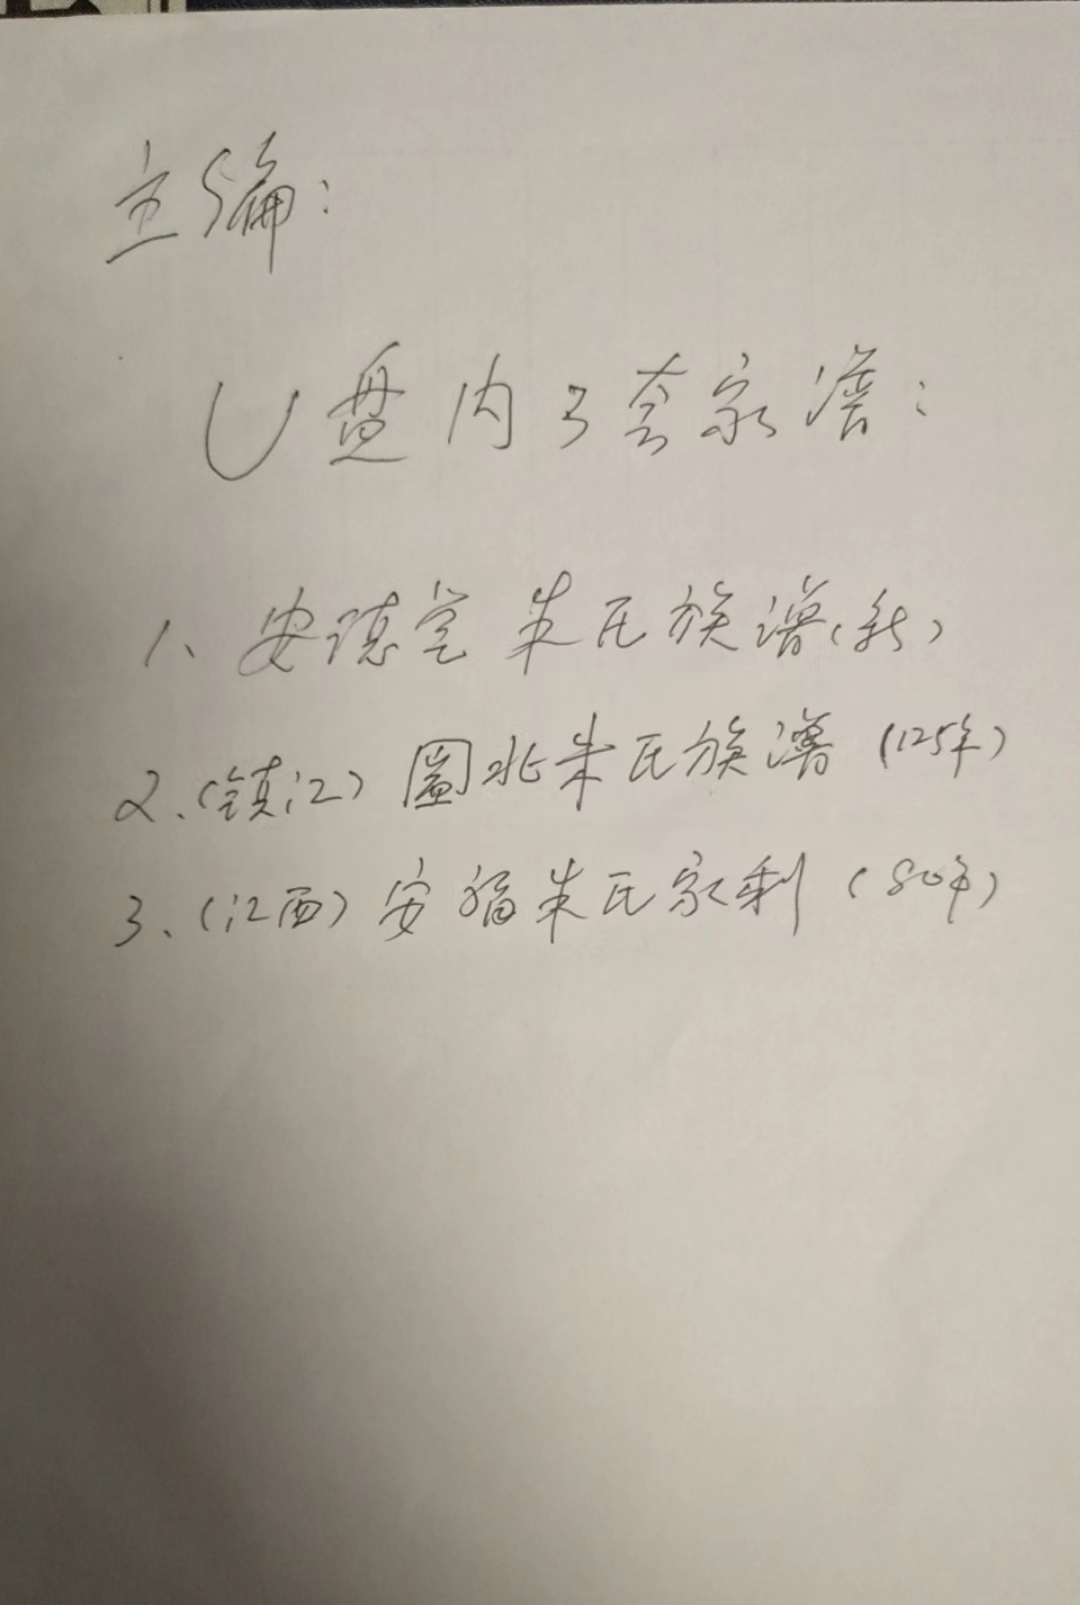 主编:
U盘内3套家谱:
1、安德堂朱氏族谱(新)
2、(镇江)圌北朱氏族谱(125年)
3、(江西)安福朱氏家乘(80年)